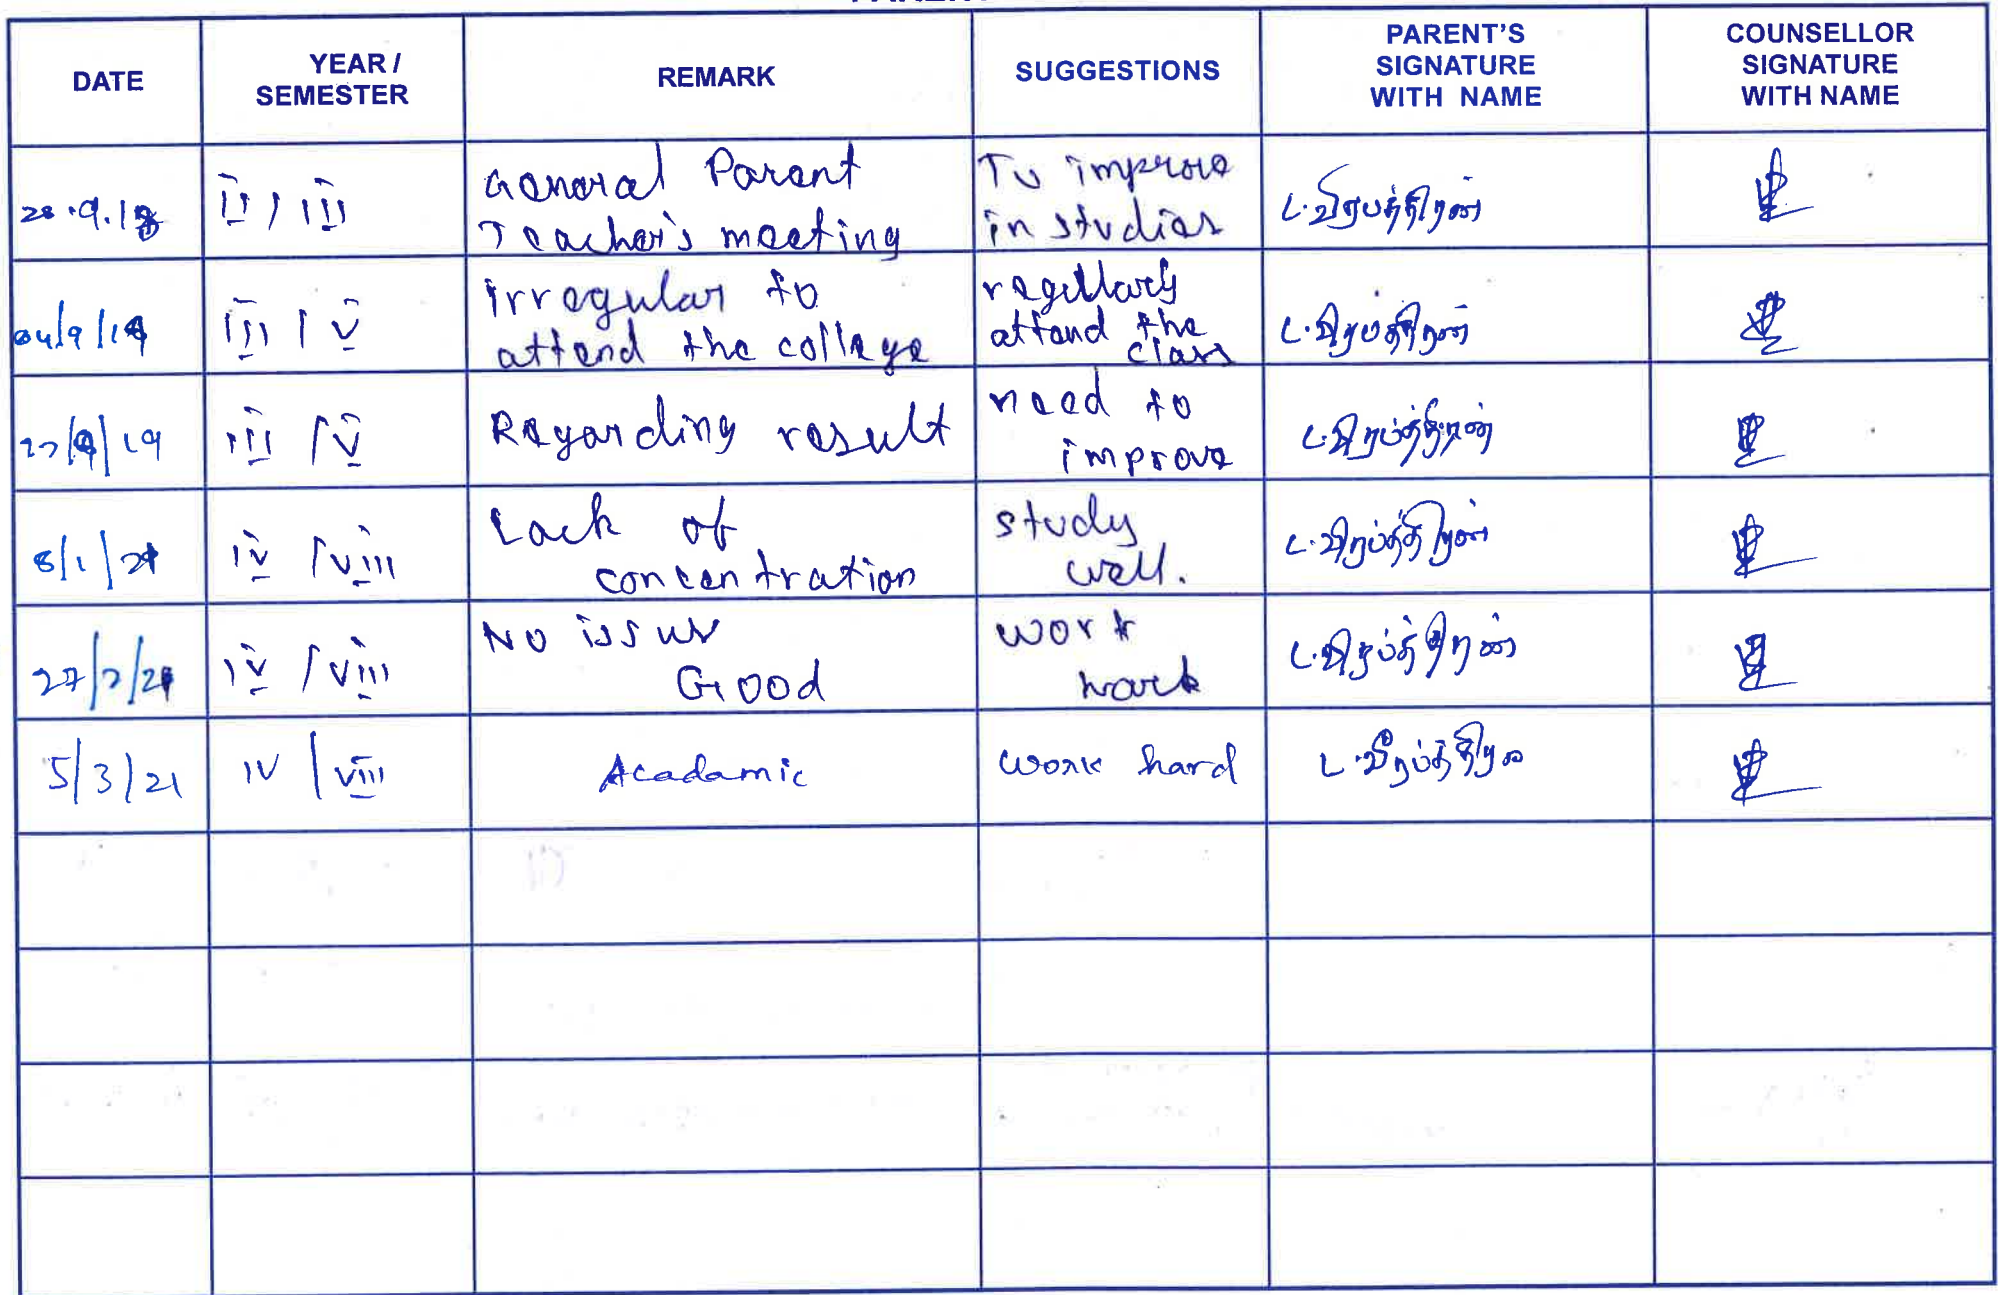 DATE
YEAR /
SEMESTER
REMARK
SUGGESTIONS
PARENT'S
SIGNATURE
WITH NAME
COUNSELLOR
SIGNATURE
WITH NAME
II / III
General Parent
Teacher's meeting
To improve
in studies
ட.வீரபத்திரன்
04/9/19
III / V
irregular to
attend the college
regularly
attend the
class
ட.வீரபத்திரன்
27/9/19
III / V
Regarding result
need to
improve
ட.வீரபத்திரன்
8/1/21
IV / VIII
Lack of
concentration
study
well.
ட.வீரபத்திரன்
27/2/21
IV / VIII
No issue
Good
work
hard
ட.வீரபத்திரன்
5/3/21
IV / VIII
Acadamic
work hard
ட.வீரபத்திரன்